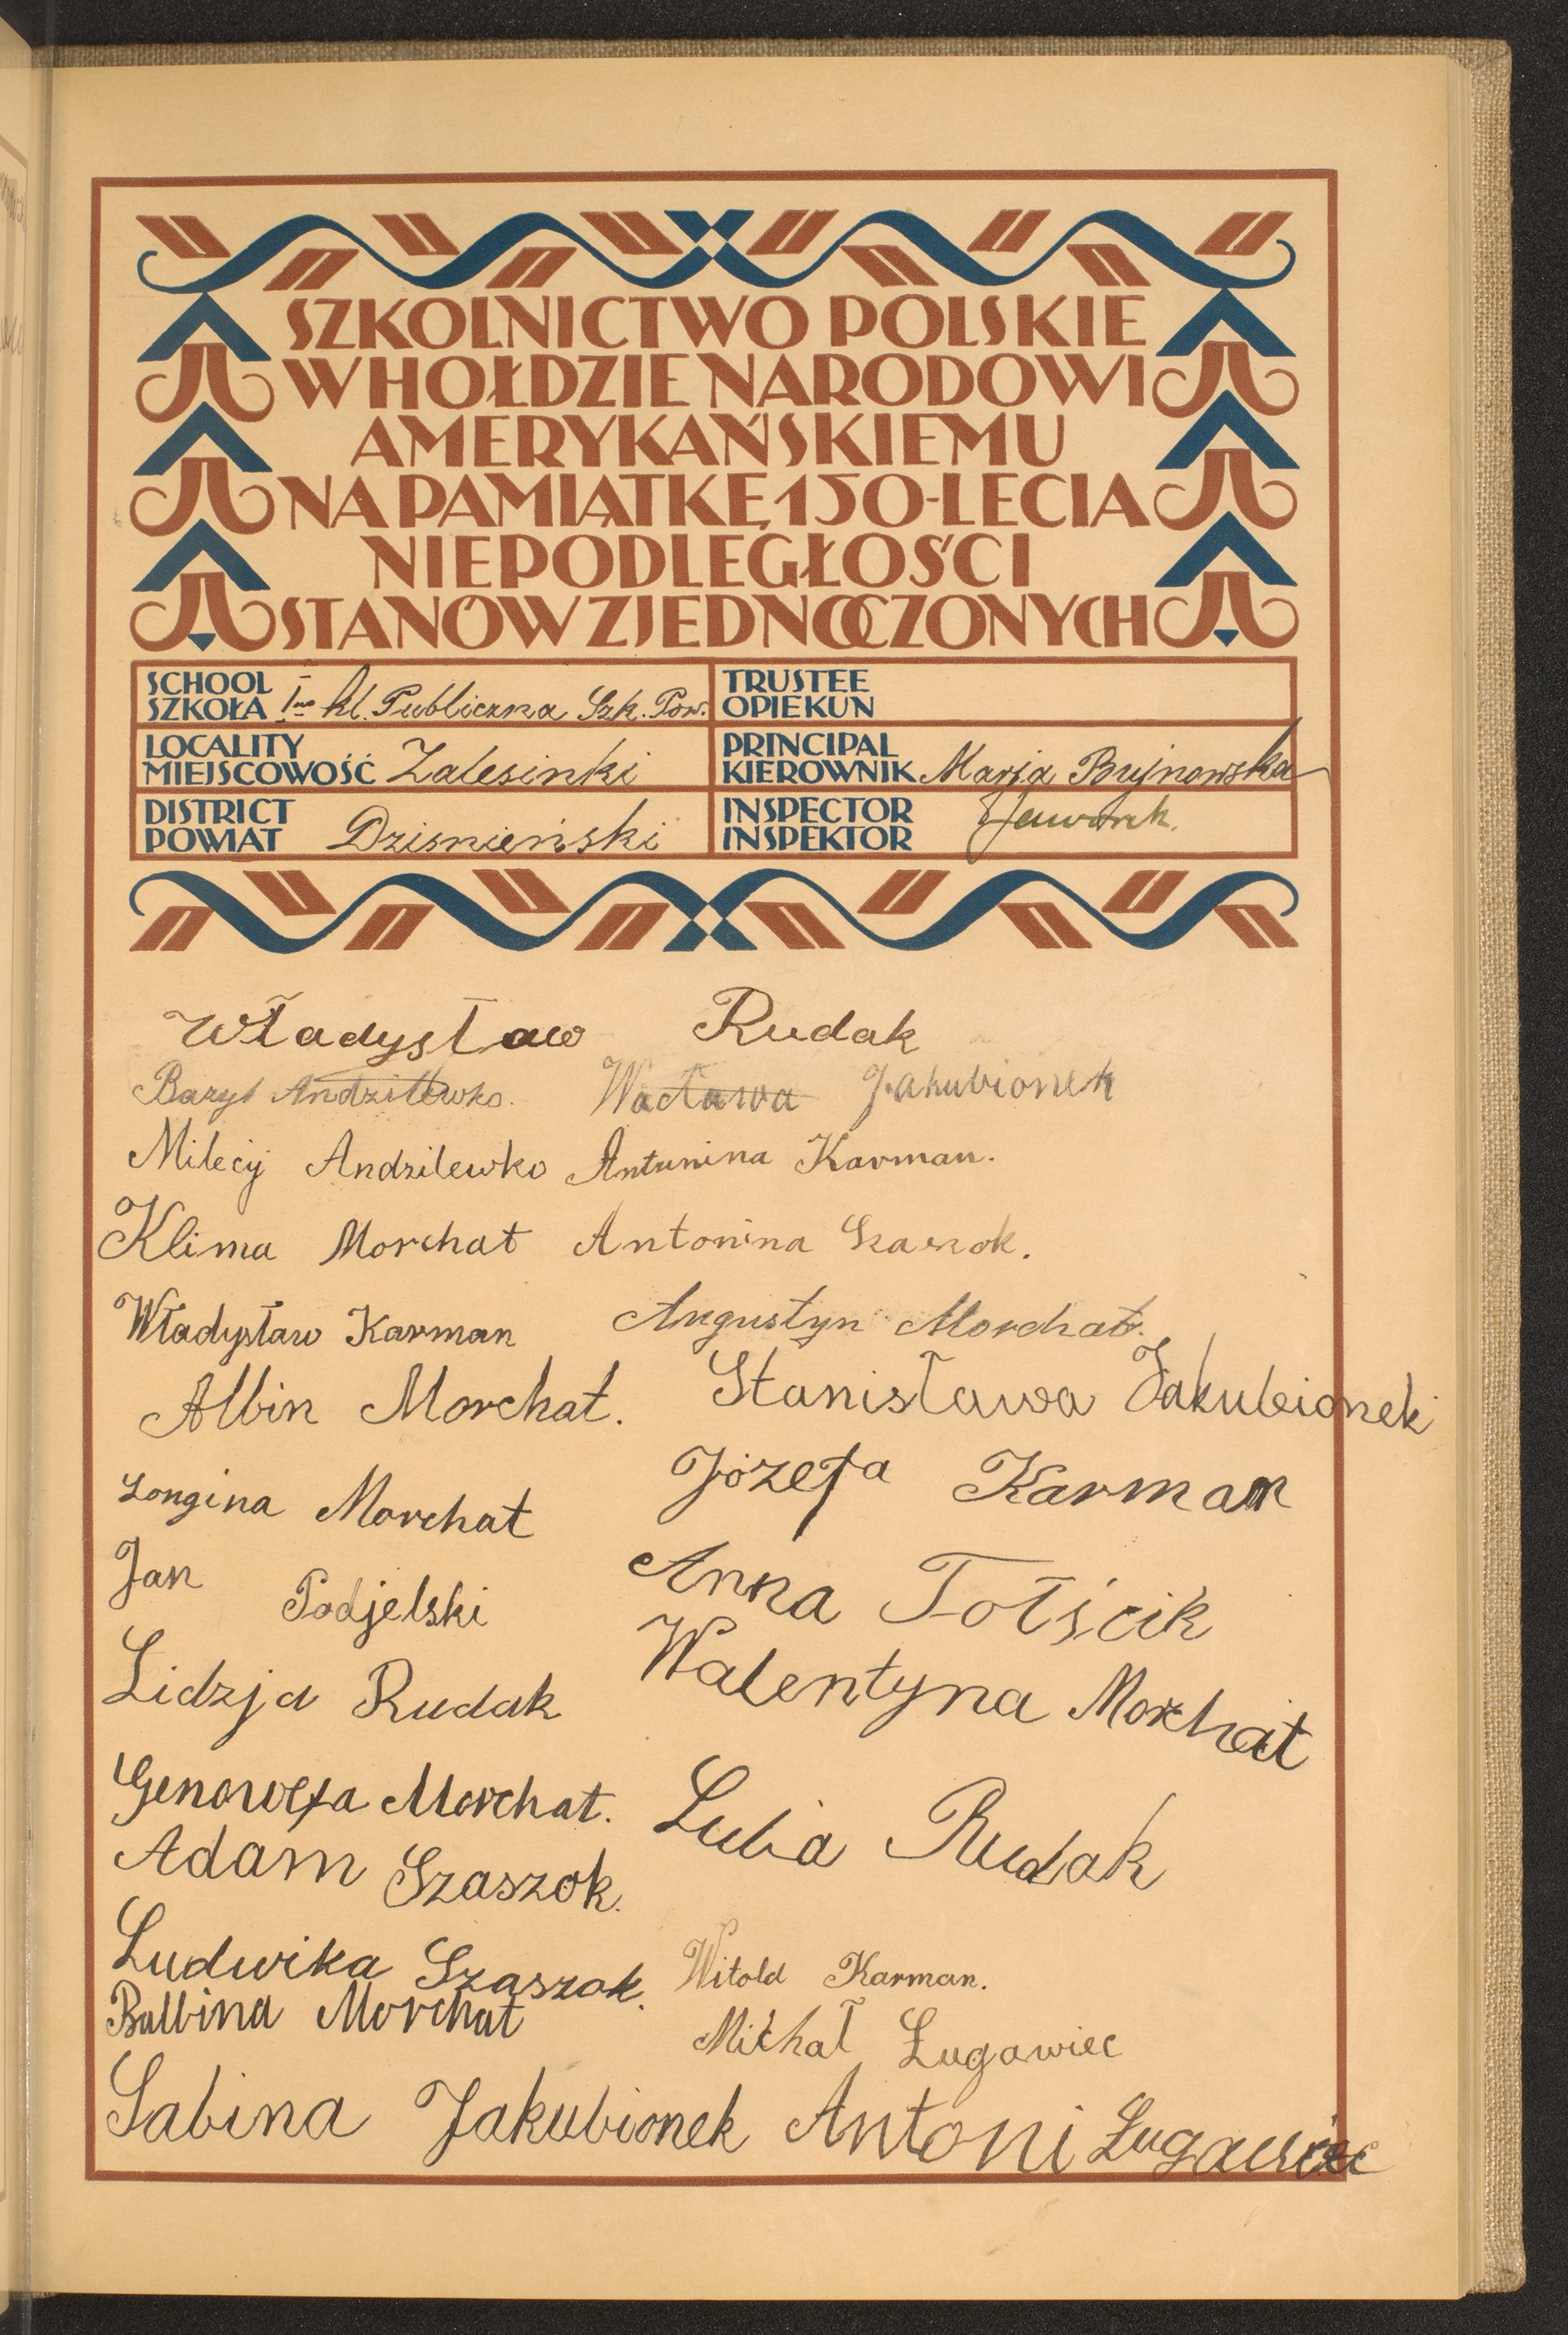 SZKOLNICTWO POLSKIE
W HOŁDZIE NARODOWI
AMERYKAŃSKIEMU
NA PAMIĄTKĘ 150-LECIA
NIEPODLEGŁOŚCI
STANÓW ZJEDNOCZONYCH
SCHOOL
SZKOŁA I-no kl. Publiczna Szk. Pow.
TRUSTEE
OPIEKUN
LOCALITY
MIEJSCOWOŚĆ Zalesinki
PRINCIPAL
KIEROWNIK Marja Bujnowska
DISTRICT
POWIAT Dzisnieński
INSPECTOR
INSPEKTOR
Władysław Rudak
Bazyl Andzilewko. Wacława Jakubionek
Milecij Andzilewko Antunina Karman.
Klima Morchat Antonina Szaszok.
Władysław Karman Augustyn Morchat.
Albin Morchat. Stanisława Jakubionek
Longina Morchat Józefa Karman
Jan Podjelski Anna Tołścik
Lidzja Rudak Walentyna Morchat
Genowefa Morchat. Luba Rudak
Adam Szaszok.
Ludwika Szaszok. Witold Karman.
Balbina Morchat Michał Ługawiec
Sabina Jakubionek Antoni Ługawiec